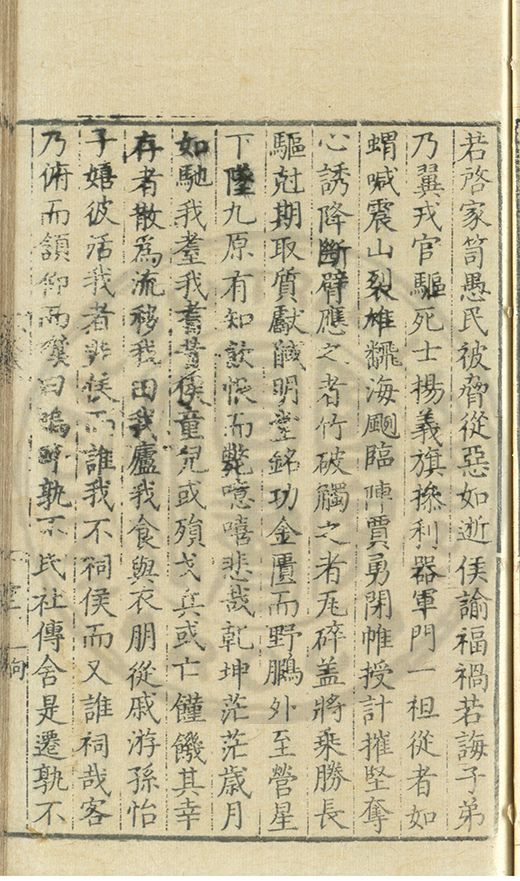 若啓家笥愚民被脅從惡如逝侯諭福禍若誨子弟
乃翼戎官驅死士揚義旗摻利器軍門一袒從者如
蝟喊震山裂雄飜海颶臨陣賈勇閉帷授計摧堅奪
心誘降斷臂應之者竹破觸之者瓦碎盖將乘勝長
驅尅期取質獻馘明堂銘功金匱而野鵬外至營星
下墜九原有知飲恨而斃噫嘻悲哉乾坤茫茫歲月
如馳我耋我耄昔侯童兒或殞戈兵或亡饉饑其幸
存者散為流移我田我廬我食與衣朋從戚游孫怡
子嬉彼活我者非侯而誰我不祠侯而又誰祠哉客
乃俯而頷仰而曰嗚呼孰不民社傳舍是遷孰不